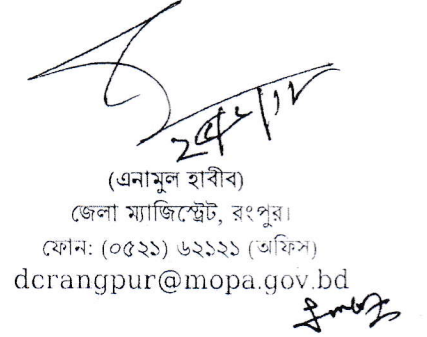 (এনামুল হাবীব)
জেলা ম্যাজিস্ট্রেট, রংপুর।
ফোন: (০৫২১) ৬২১২১ (অফিস)
dcrangpur@mopa.gov.bd